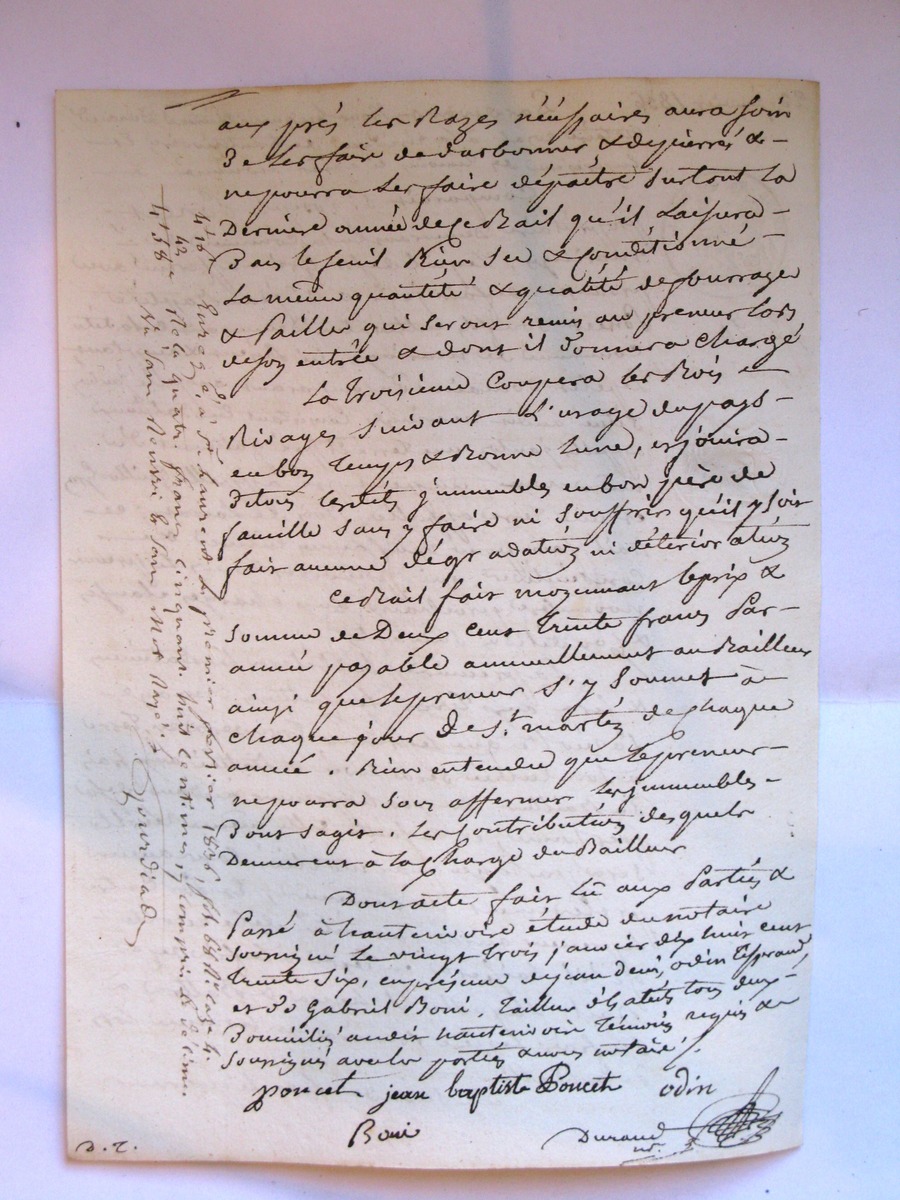 aux prés les Razes nécéssaires aura soin
de les faire de darbonner & depierrer &
ne pourra les faire dépaitre surtout la
Derniere année de ce Bail qu'il Laissera
Dans le fenil Bien sec & Conditionné
La même quantité & qualité de fourrage
& Paille qui seront remis au preneur Lors
de son entrée & dont il Donnera Chargé
La troisieme Coupera les Bois et
Rivages Suivant L'usage du pays
en bon temps & Bonne lune, et jouira
De tous lesdits jmmeubles en bon père de
famille Sans y faire ni Souffrir qu'il y soit
fait aucune dégradation ni déterioration
Ce Bail fait moyennant le prix &
Somme de Deux Cent Trente francs Par
année payable annuellement au Bailleur
ainsi que le preneur s'y Soumet à
chaque jour de St. martin de chaque
année. Bien entendu que le preneur
ne pourra Sous affermer les jmmeubles
Dont s'agit. Les Contributions desquels
Demeurent à la Charge du Bailleur
Dont acte fait lû aux Parties &
Passé à hauterivoire étude du notaire
Soussigné Le vingt Trois janvier dix huit cent
Trente Six, en présence de jean Denis odin Tisserand
et de Gabriel Boni, Tailleur d'habits tous deux
Domiciliés audit hauterivoire Témoins requis &
Soussignés avec les parties & nous notaire.
poncet jean baptiste Poncet odin
Boni Durand
nre.
D. T.
Enreg. é, à St. Laurent le premier février 1836, f° 66 R° case 4.
Reçu quatre francs cinquante huit centimes, y compris le décime.
Gourdiat
4 f 16
42
4 f 58